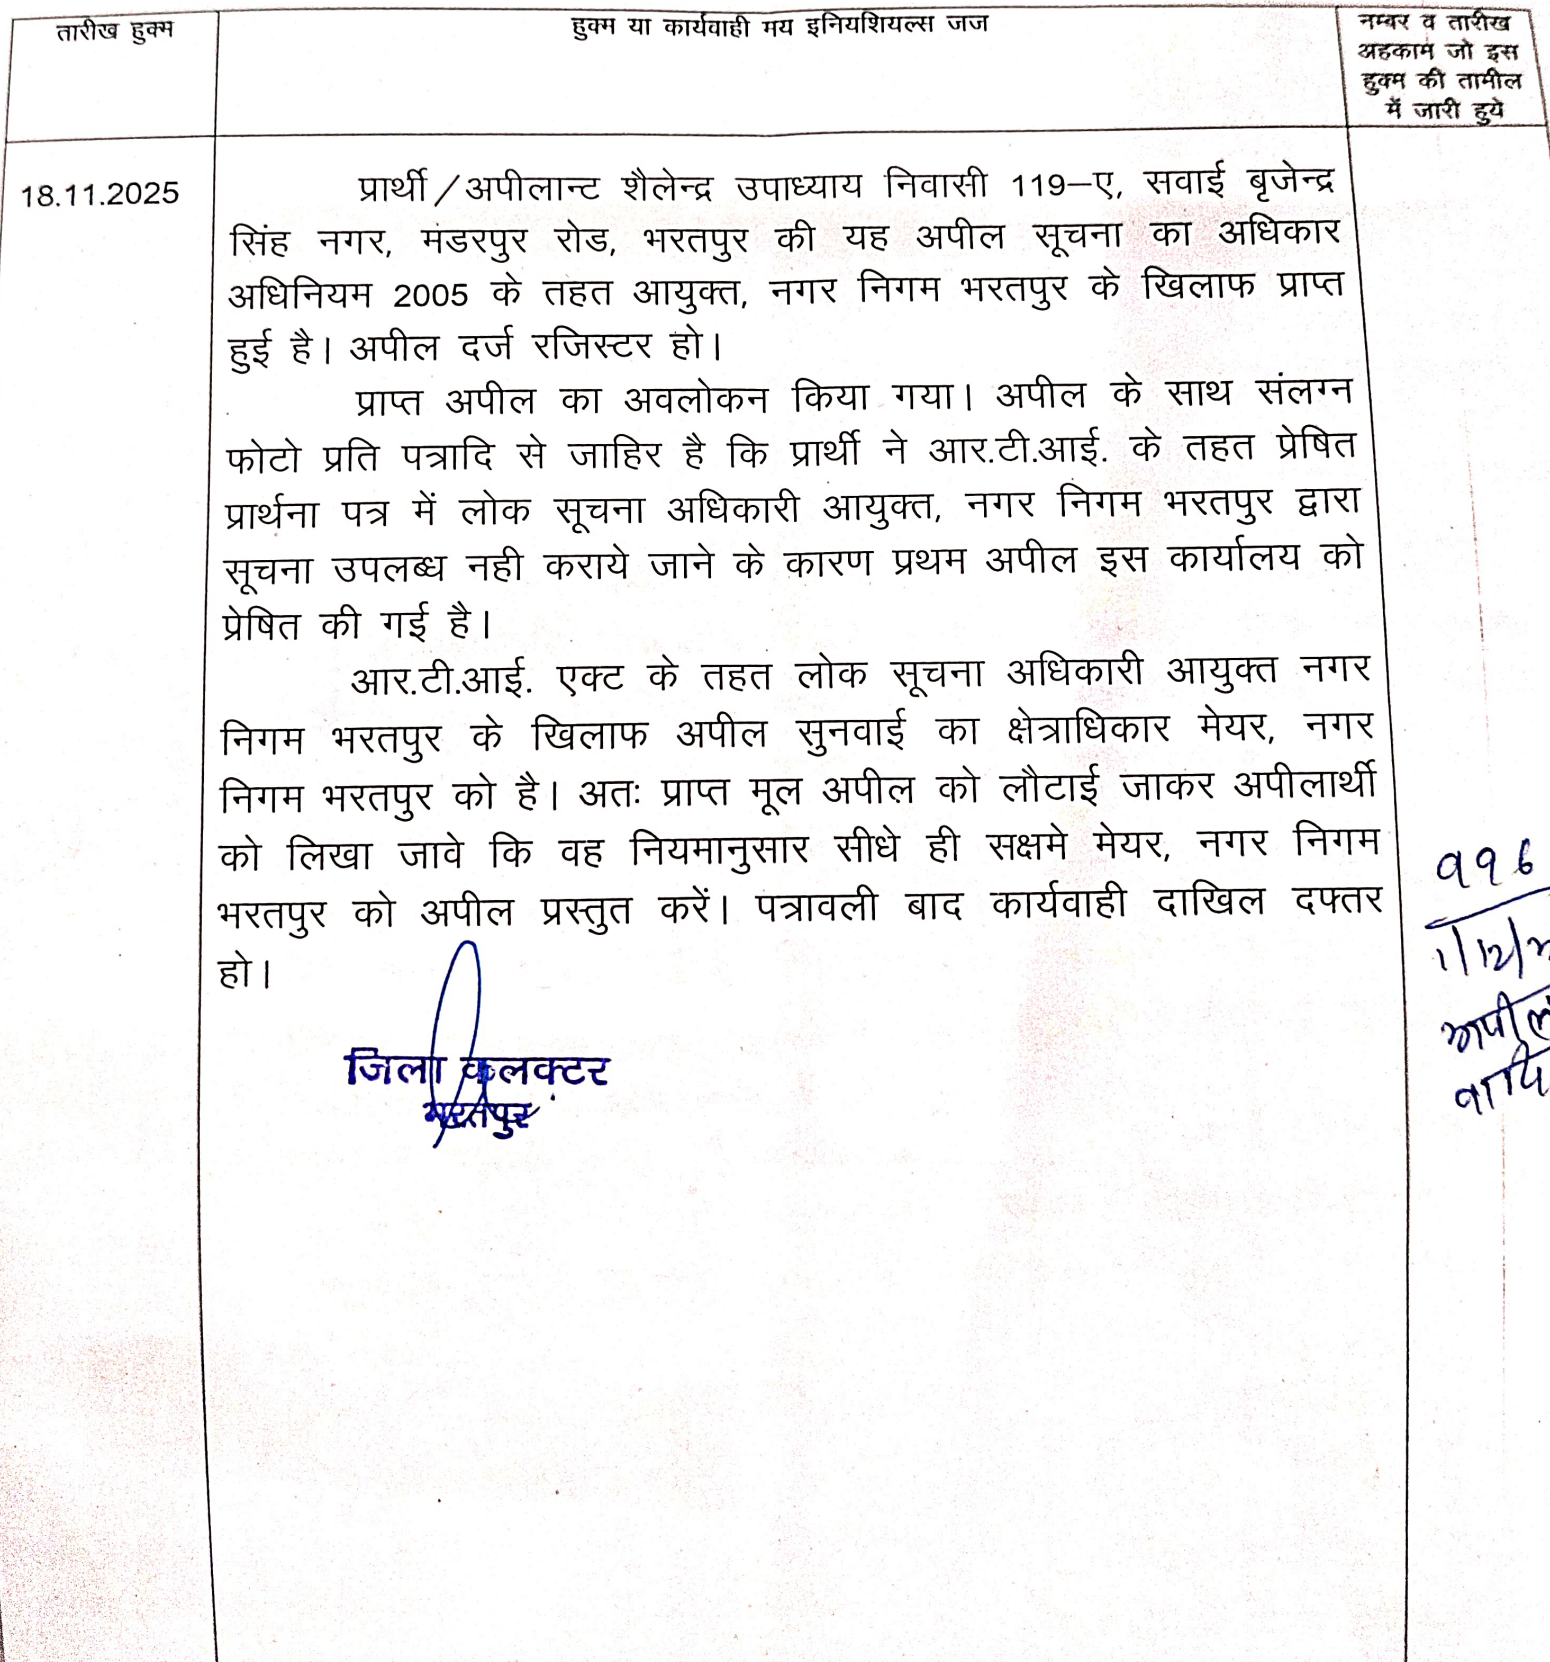 तारीख हुक्म
हुक्म या कार्यवाही मय इनियशियल्स जज
नम्बर व तारीख
अहकाम जो इस
हुक्म की तामील
में जारी हुये
18.11.2025
प्रार्थी/अपीलान्ट शैलेन्द्र उपाध्याय निवासी 119–ए, सवाई बृजेन्द्र
सिंह नगर, मंडरपुर रोड, भरतपुर की यह अपील सूचना का अधिकार
अधिनियम 2005 के तहत आयुक्त, नगर निगम भरतपुर के खिलाफ प्राप्त
हुई है। अपील दर्ज रजिस्टर हो।
प्राप्त अपील का अवलोकन किया गया। अपील के साथ संलग्न
फोटो प्रति पत्रादि से जाहिर है कि प्रार्थी ने आर.टी.आई. के तहत प्रेषित
प्रार्थना पत्र में लोक सूचना अधिकारी आयुक्त, नगर निगम भरतपुर द्वारा
सूचना उपलब्ध नही कराये जाने के कारण प्रथम अपील इस कार्यालय को
प्रेषित की गई है।
आर.टी.आई. एक्ट के तहत लोक सूचना अधिकारी आयुक्त नगर
निगम भरतपुर के खिलाफ अपील सुनवाई का क्षेत्राधिकार मेयर, नगर
निगम भरतपुर को है। अतः प्राप्त मूल अपील को लौटाई जाकर अपीलार्थी
को लिखा जावे कि वह नियमानुसार सीधे ही सक्षमे मेयर, नगर निगम
भरतपुर को अपील प्रस्तुत करें। पत्रावली बाद कार्यवाही दाखिल दफ्तर
हो।
जिला कलक्टर
भरतपुर
११६
1/12/